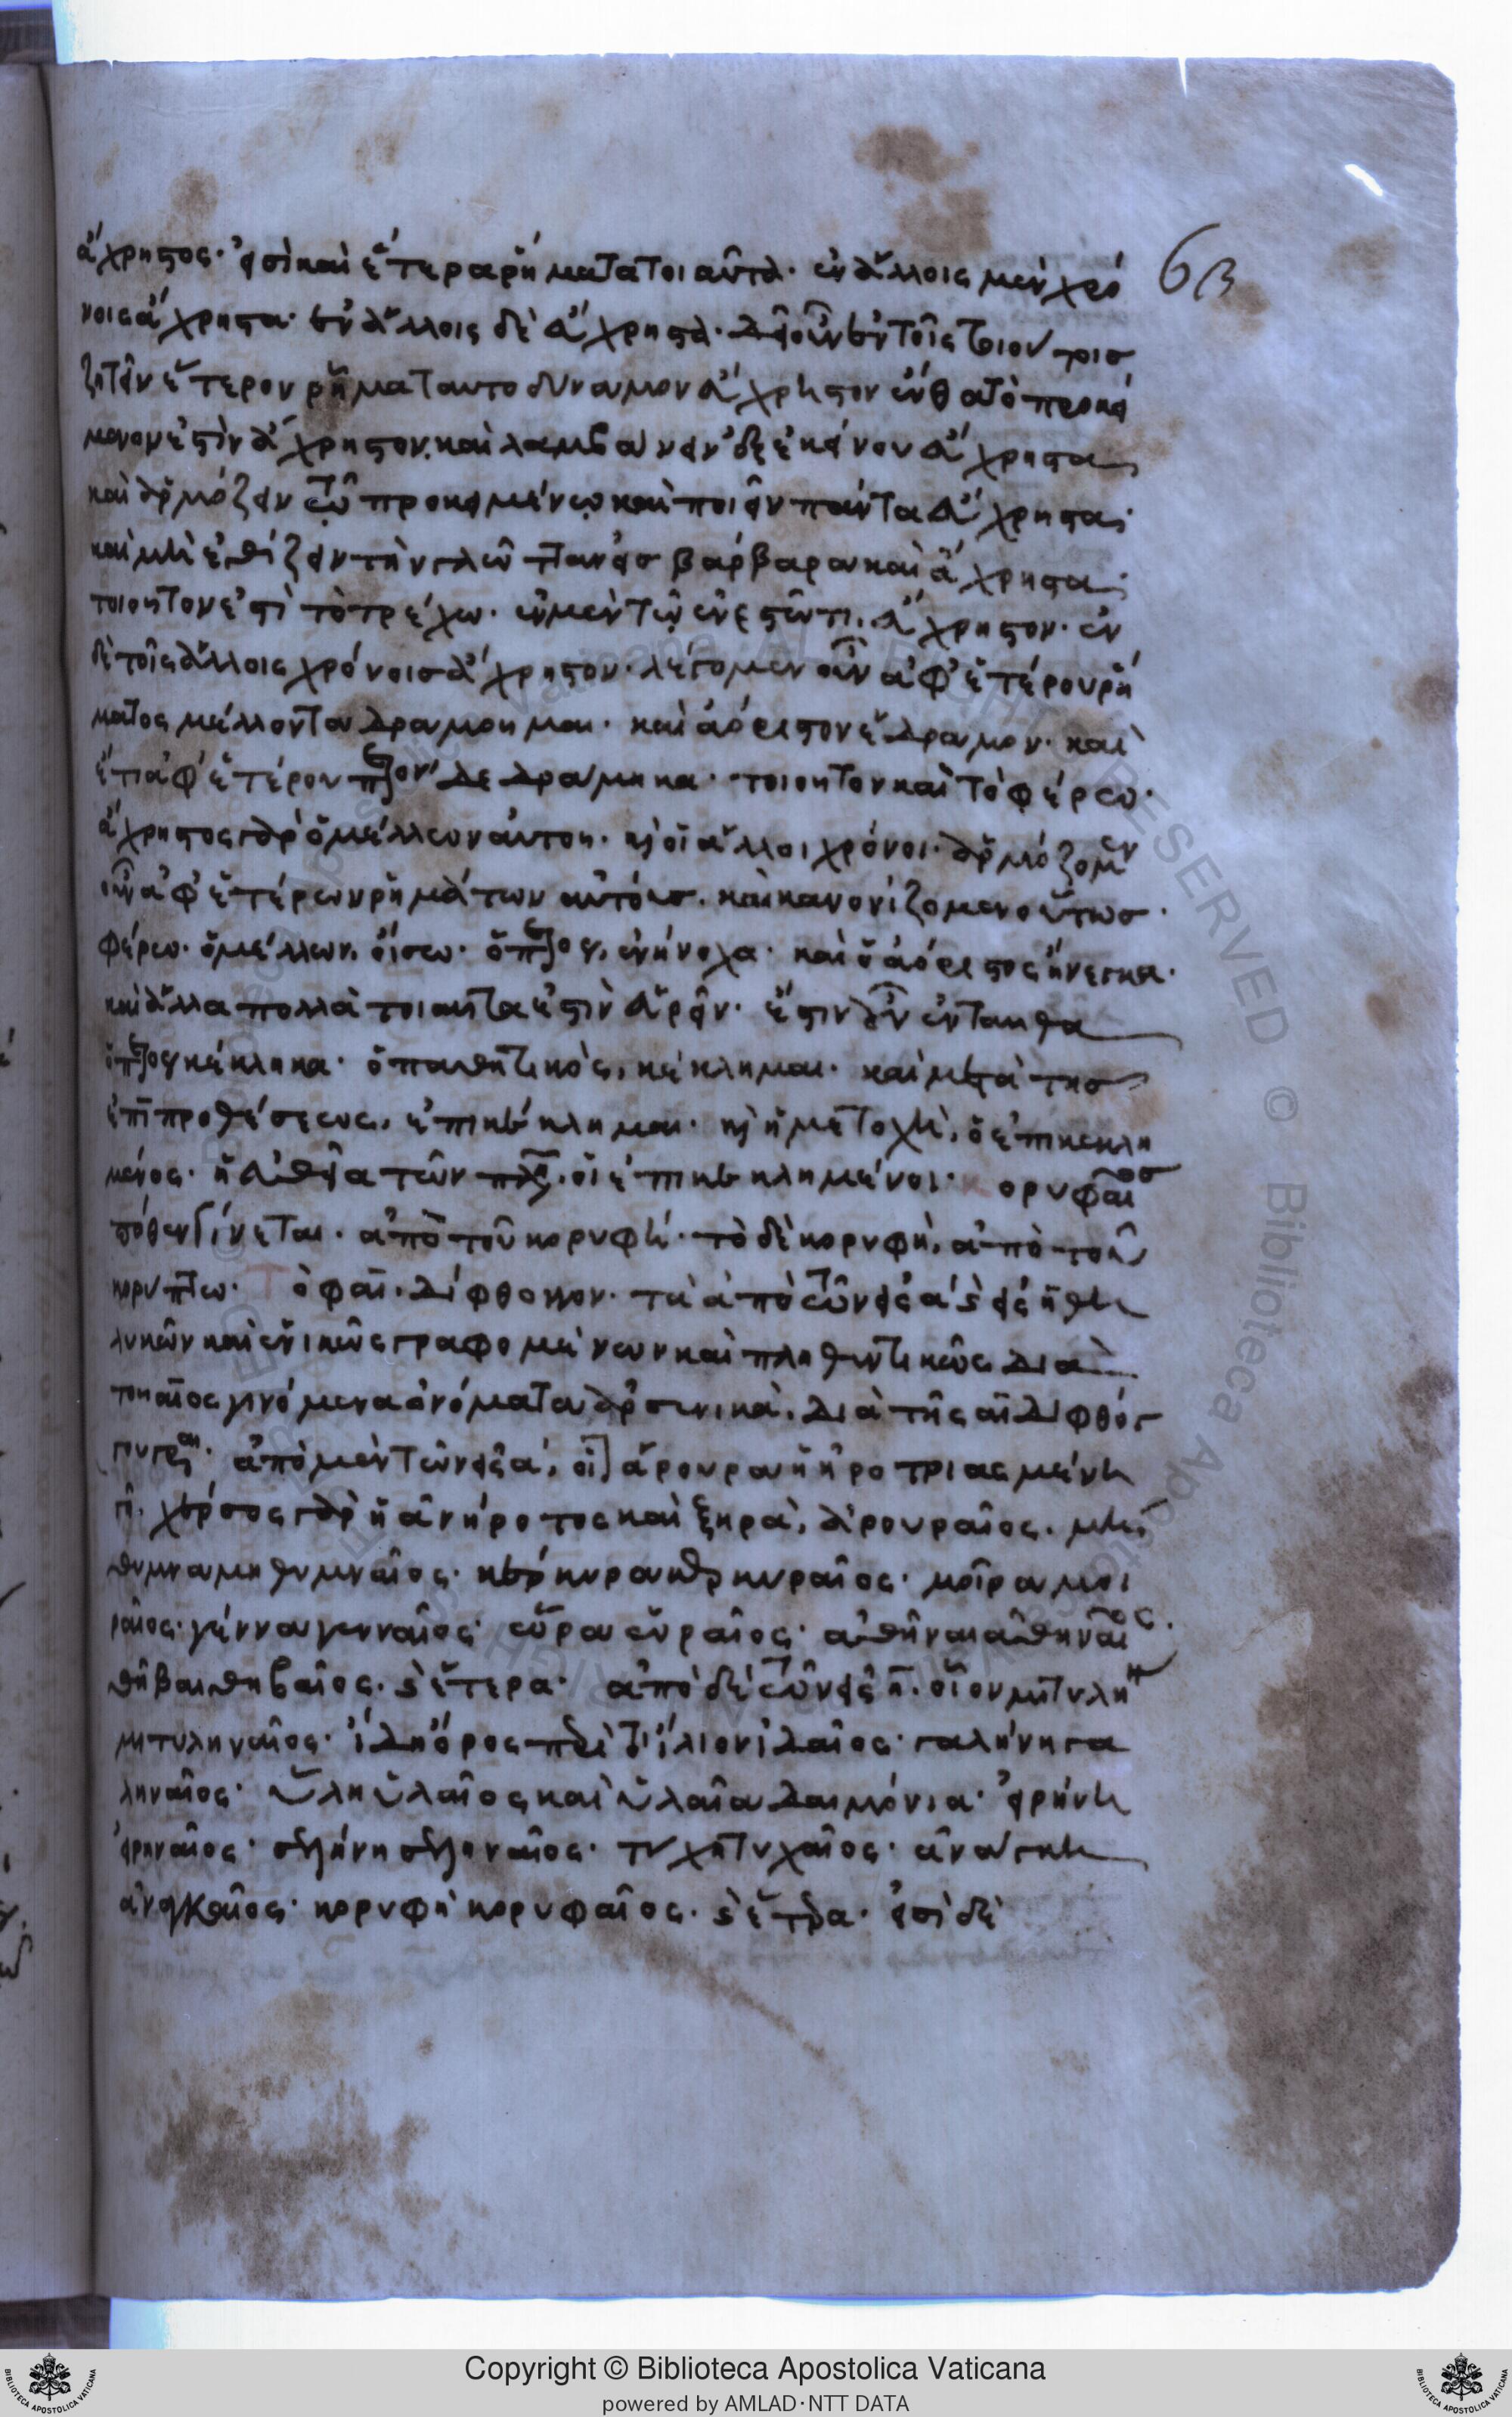 63
ἄχρηστος· εἰσὶ καὶ ἕτερα ῥήματα τοιαῦτα· ἐν ἄλλοις μὲν χρό
νοις ἄχρηστα· ἐν ἄλλοις δὲ ἄχρηστα· δεῖ οὖν ἐν τοῖς τοιούτοισ
ζητεῖν ἕτερον ῥῆμα ταυτοδύναμον ἄχρηστον ἔνθα τὸ προκεί
μενον ἐστὶν ἄχρηστον, καὶ λαμβάνειν ἐξ ἐκείνου ἄχρηστα
καὶ ἁρμόζειν τῷ προκειμένῳ καὶ ποιεῖν πάντα ἄχρηστα·
καὶ μὴ ἐθίζειν τὴν γλῶτταν εἰσ βάρβαρα καὶ ἄχρηστα·
τοιοῦτον ἐστὶ τὸ τρέχω· ἐν μὲν τῷ ἐνεστῶτι, ἄχρηστον· ἐν
δὲ τοῖς ἄλλοις χρόνοισ ἄχρηστον· λέγομεν οὖν ἀφ' ἑτέρου ῥή
ματος μέλλοντα δραμοῦμαι· καὶ ἀόριστον ἔδραμον· καὶ
ἔτι ἀφ' ἑτέρου δεδράμηκα· τοιοῦτον καὶ τὸ φέρω·
ἄχρηστος γὰρ ὁ μέλλων αὐτοῦ· καὶ οἱ ἄλλοι χρόνοι· ἁρμόζομεν
οὖν ἀφ' ἑτέρων ῥημάτων αὐτοῖσ· καὶ κανονίζομεν οὕτωσ·
φέρω· ὁ μέλλων, οἴσω· ὁ ἐνήνοχα· καὶ ὁ ἀόριστος ἤνεγκα·
καὶ ἄλλα πολλὰ τοιαῦτα ἐστὶν εὑρεῖν· ἔστιν οὖν ἐνταῦθα
κέκληκα· ὁ παθητικὸς, κέκλημαι· καὶ μετὰ τησ
ἐπὶ προθέσεως, ἐπικέκλημαι· καὶ ἡ μετοχὴ, ὁ ἐπικεκλη
μένος· ἡ εὐθεῖα τῶν πλ, οἱ ἐπικεκλημένοι· Κορυφαῖοσ
πόθεν γίνεται· ἀπὸ τοῦ κορυφή· τὸ δὲ κορυφὴ, ἀπὸ τοῦ
κορύπτω· Τὸ φαῖ· δίφθογγον· τὰ ἀπὸ τῶν εἰς α καὶ εἰς η θη
λυκῶν καὶ ἑνικῶς γραφομένων καὶ πληθυντικῶς διὰ
τοῦ αῖος γινόμενα ὀνόματα ἀρσενικὰ, διὰ τῆς αῖ διφθόγ
γου γράφεται· ἀπὸ μὲν τῶν εἰς α, οἷον ἄρουρα ἡ ἠροτριασμένη
γῆ, χέρσος γὰρ ἡ ἀνήροτος καὶ ξηρὰ, ἀρουραῖος· μή
θυμνα μηθυμναῖος· κέρκυρα κερκυραῖος· μοῖρα μοι
ραῖος· γέννα γενναῖος· εὔρα εὐραῖος· ἀθῆναι ἀθηναῖος·
θῆβαι θηβαῖος· καὶ ἕτερα· ἀπὸ δὲ τῶν εἰς η· οἷον μιτυλήνη
μιτυληναῖος· ἴδη ὄρος περὶ τὸ ἴλιον ἰδαῖος· γαλήνη γα
ληναῖος· ὕλη ὑλαῖος καὶ ὑλαῖα δαιμόνια· εἰρήνη
εἰρηναῖος· σελήνη σεληναῖος· τύχη τυχαῖος· ἀνάγκη
ἀναγκαῖος· κορυφὴ κορυφαῖος· καὶ ἕτερα· εἰσὶ δὲ
Copyright © Biblioteca Apostolica Vaticana
powered by AMLAD·NTT DATA